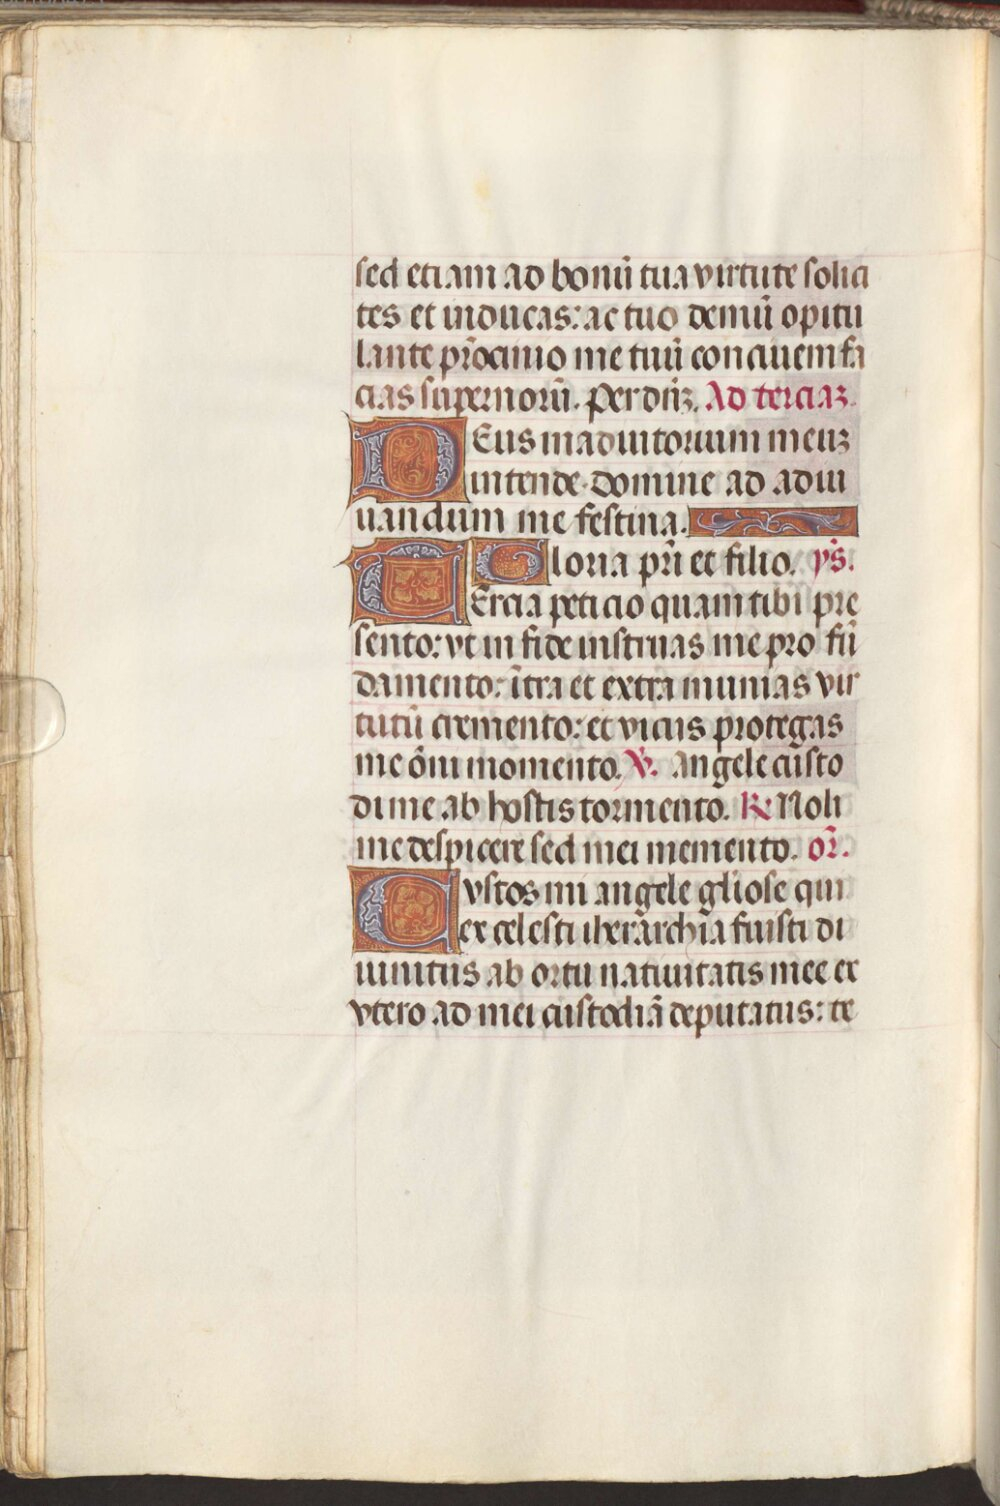 sed etiam ad bonū tua virtute solici
tes et inducas: ac tuo demū opitu
lante pr̄ocinio me tuū conciuem fa
cias supernorū. Per dn̄ꝫ. Ad terciaꝫ.
DEus in adiutorium meuꝫ
intende. domine ad adiu
uandum me festina.
Gloria pr̄i et filio. yṡ.
TErcia peticio quam tibi pre
sento: vt in fide instruas me pro fū
damento: ītra et extra munias vir
tutū cremento: et vicus protegas
me ōni momento. ℣. Angele custo
di me ab hostis tormento. ℟ Noli
me despicere sed mei memento. or̄.
Cvstos mi angele gl̄iose qui
ex celesti iherarchia fuisti di
uinitus ab ortu natiuitatis mee ex
vtero ad mei custodiā deputatus: te